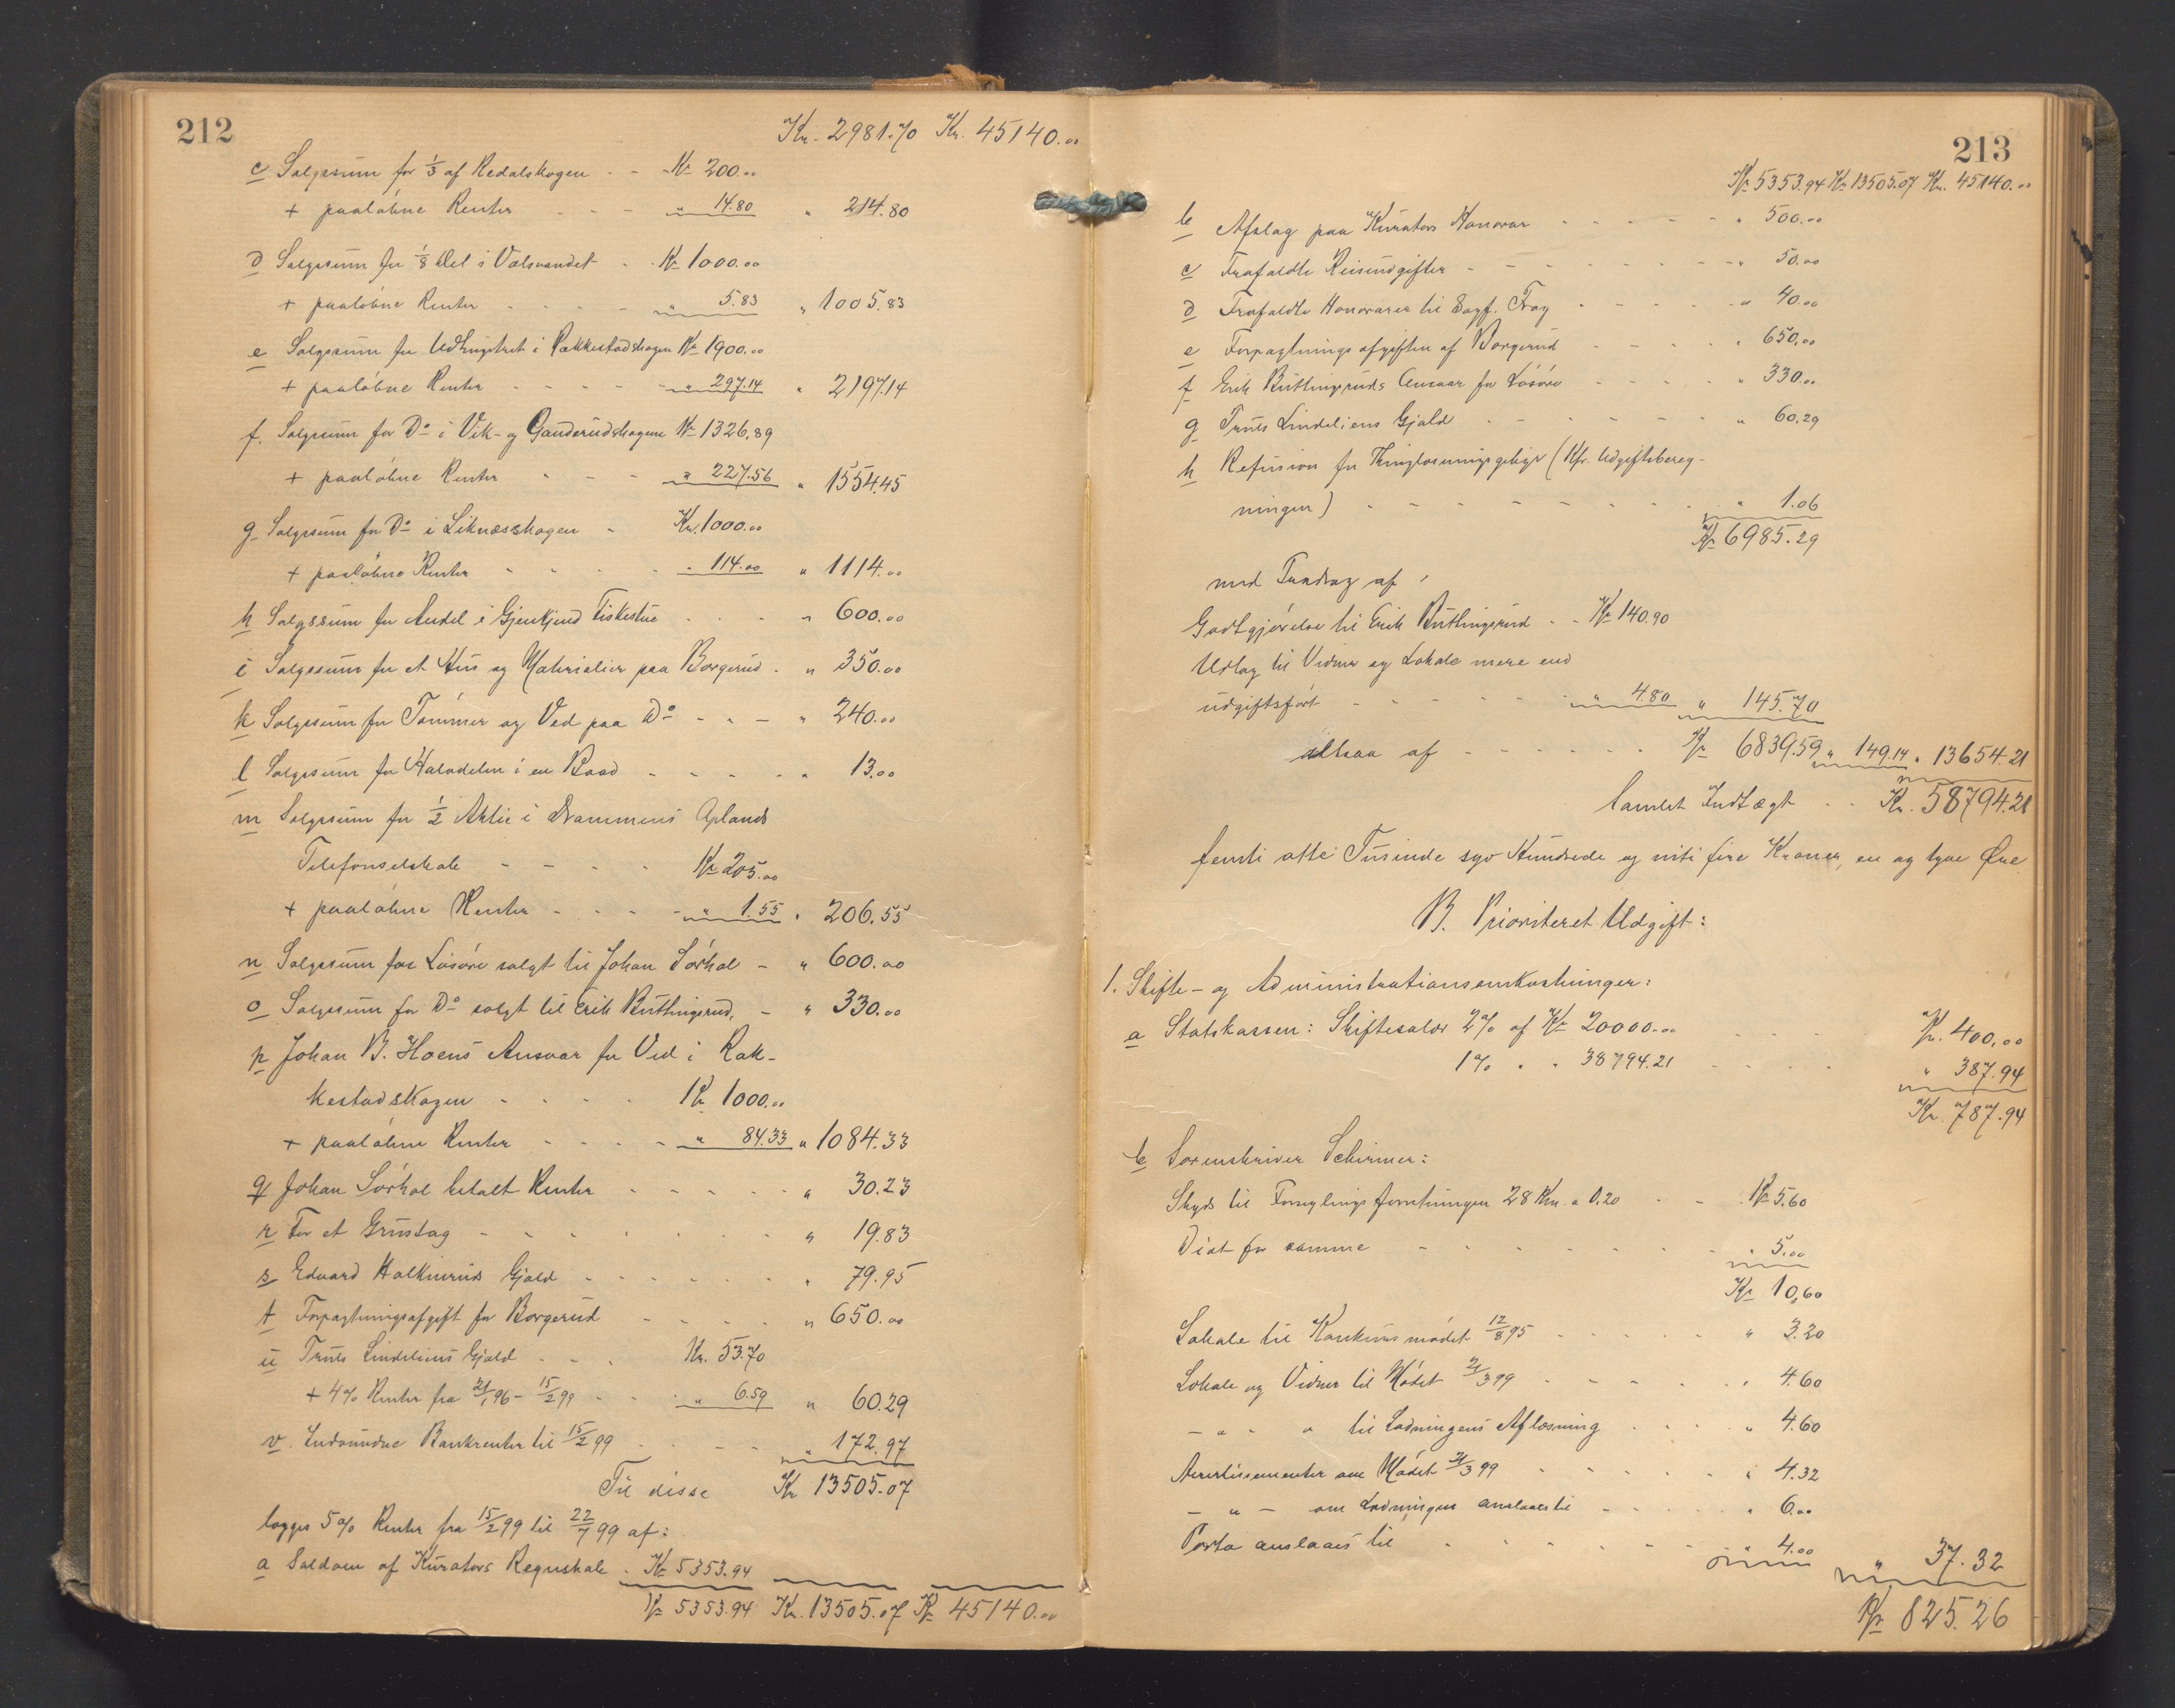 212
Kr. 2981.70 Kr. 45140.00
c Salgssum for 1/3 af Redalskogen - - Kr 200.00
+ paaløbne Renter - - - " 14.80 " 214.80
d Salgssum for 1/8 Del i Valsvandet - Kr 1000.00
+ paaløbne Renter - - - " 5.83 " 1005.83
e Salgssum for Udhugstret i Rakkestadskogen Kr 1900.00
+ paaløbne Renter - - - " 297.14 " 2197.14
f. Salgssum for Do i Vik- og Ganderudskogene Kr 1326.89
+ paaløbne Renter - - - " 227.56 " 1554.45
g Salgssum for Do i Liknæsskogen - Kr. 1000.00
+ paaløbne Renter - - - " 114.00 " 1114.00
h Salgssum for Andel i Gjenkjend Fiskestue - - - " 600.00
i Salgssum for et Hus og Materialier paa Borgerud - " 350.00
k Salgssum for Tømmer og Ved paa Do - - - " 240.00
l Salgssum for Halvdelen i en Baad - - - " 13.00
m Salgssum for 1/2 Aktie i Drammens Oplands
Telefonselskab - - - Kr 205.00
+ paaløbne Renter - - - " 1.55 " 206.55
n Salgssum for Løsøre solgt til Johan Sørhol - " 600.00
o Salgssum for Do solgt til Erik Buttingsrud, - " 330.00
p Johan B. Hoens Ansvar for Ved i Rak-
kestadskogen - - - - Kr 1000.00
+ paaløbne Renter - - - - " 84.33 " 1084.33
q Johan Sørhol betalt Renter - - - - - " 30.23
r For et Grustag - - - - - - " 19.83
s Edvard Halkinruds Gjæld - - - - - " 79.95
t Forpagtningsafgift for Borgerud - - - - " 650.00
u Truls Lindeliens Gjæld - - - Kr. 53.70
+ 4% Renter fra 21/1 96 - 15/2 99 - - " 6.59 " 60.29
v. Indvundne Bankrenter til 15/2 99 - - - " 172.97
Til disse Kr 13505.07
lægges 5% Renter fra 15/2 99 til 22/7 99 af:
a Saldoen af Kurators Regnskab - Kr 5353.94
Kr 5353.94 Kr. 13505.07 Kr 45140.00
213
Kr 5353.94 Kr 13505.07 Kr. 45140.00
b Afslag paa Kurators Honorar - - - - - " 500.00
c Frafaldte Reiseudgifter - - - - - - " 50.00
d Frafaldte Honorarer til Sagf. Frog - - - - " 40.00
e Forpagtningsafgiften af Borgerud - - - - " 650.00
f Erik Buttingsruds Ansvar for Løsøre - - - - " 330.00
g Truls Lindeliens Gjæld - - - - - - " 60.29
h Refusion for Thinglæsningsgebyr (Kfr. Udgiftsbereg-
ningen) - - - - - - - - " 1.06
Kr 6985.29
med Fradrag af
Godtgjørelse til Erik Buttingsrud - - Kr 140.90
Udlæg til Vidner og Lokale mere end
udgiftsført - - - - - - " 4.80 " 145.70
altsaa af - - - - - - Kr 6839.59 " 149.14 " 13654.21
Samlet Indtægt - - Kr. 58794.21
femti otte Tusinde syv Hundrede og niti fire Kroner, en og tyve Øre
B. Prioriteret Udgift:
1. Skifte- og Administrationsomkostninger:
a Statskassen: Skiftesalær 2% af Kr 20000.00 - - - Kr. 400.00
1% " " 38794.21 - - - - " 387.94
Kr. 787.94
b Sorenskriver Schirmer:
Skyds til Forseglingsforretningen 28 Km. a 0.20 - - Kr 5.60
Diæt for samme - - - - - - - " 5.00
Kr 10.60
Lokale til Konkursmødet 12/8 95 - - - - - " 3.20
Lokale og Vidner til Mødet 21/3 99 - - - - - " 4.60
- " - " til Ladningens Aflæsning - - - " 4.60
Avertissementer om Mødet 21/3 99 - - - - - " 4.32
- " - om Ladningen anslaaes til - - - - " 6.00
Porto anslaaes til - - - - - - " 4.00 " 37.32
Kr 825.26